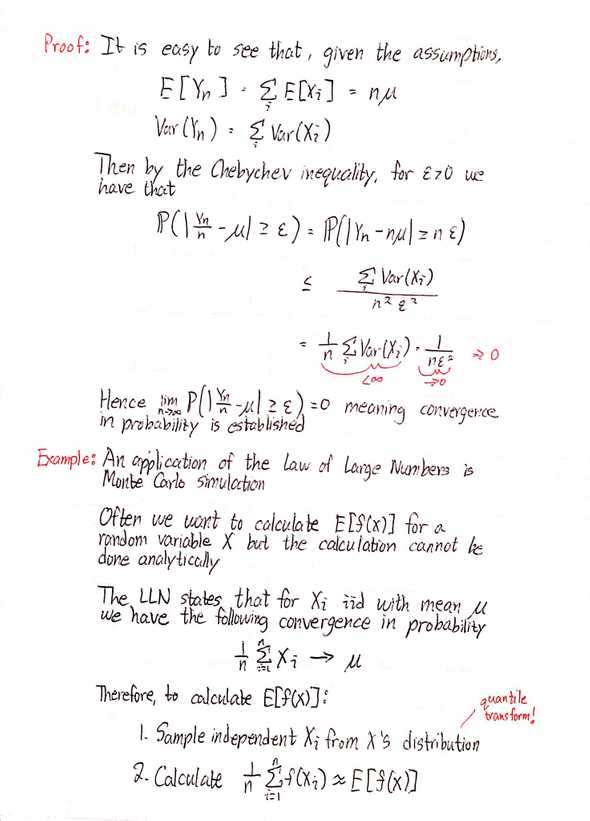 Proof: It is easy to see that, given the assumptions,
E[Yₙ] = Σᵢ E[Xᵢ] = nμ
Var(Yₙ) = Σᵢ Var(Xᵢ)
Then by the Chebychev inequality, for ε>0 we
have that
ℙ(|Yₙ/n - μ| ≥ ε) = ℙ(|Yₙ - nμ| ≥ n ε)
≤ Σᵢ Var(Xᵢ) / n² ε²
= 1/n Σᵢ Var(Xᵢ) · 1/nε² → 0
<∞ →0
Hence lim n→∞ P(|Yₙ/n - μ| ≥ ε) = 0 meaning convergence
in probability is established
Example: An application of the Law of Large Numbers is
Monte Carlo simulation
Often we want to calculate E[f(X)] for a
random variable X but the calculation cannot be
done analytically
The LLN states that for Xᵢ iid with mean μ
we have the following convergence in probability
1/n Σᵢ₌₁ⁿ Xᵢ → μ
Therefore, to calculate E[f(X)]:
quantile
transform!
1. Sample independent Xᵢ from X's distribution
2. Calculate 1/n Σᵢ₌₁ⁿ f(Xᵢ) ≈ E[f(X)]